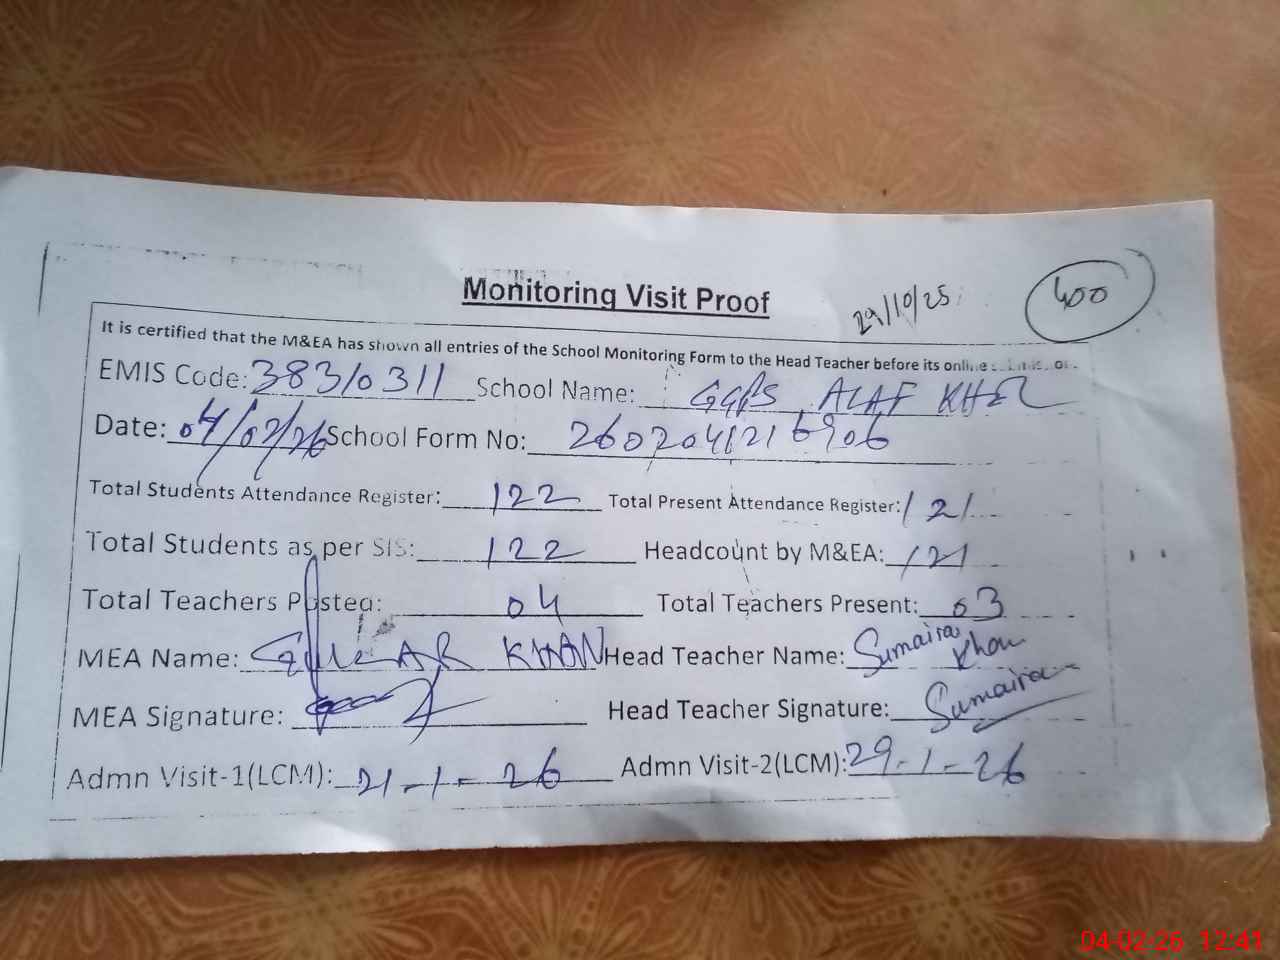 Monitoring Visit Proof
29/10/25
400
It is certified that the M&EA has shown all entries of the School Monitoring Form to the Head Teacher before its online
EMIS Code: 38310311 School Name: GGPS ALAF KHEL
Date: 04/02/26 School Form No: 2602041216906
Total Students Attendance Register: 122 Total Present Attendance Register: 121
Total Students as per SIS: 122 Headcount by M&EA: 121
Total Teachers Posted: 04 Total Teachers Present: 03
MEA Name: KHAN Head Teacher Name: Sumaira Khan
MEA Signature: Head Teacher Signature: Sumaira
Admn Visit-1(LCM): 21-1-26 Admn Visit-2(LCM): 29-1-26
04-02-26 12:41